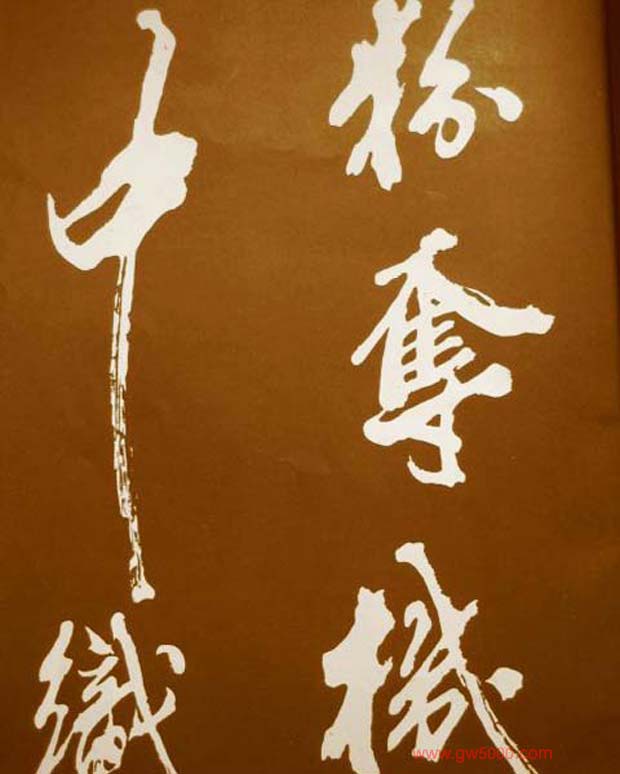 粉奪機
中織
www.gw5000.com